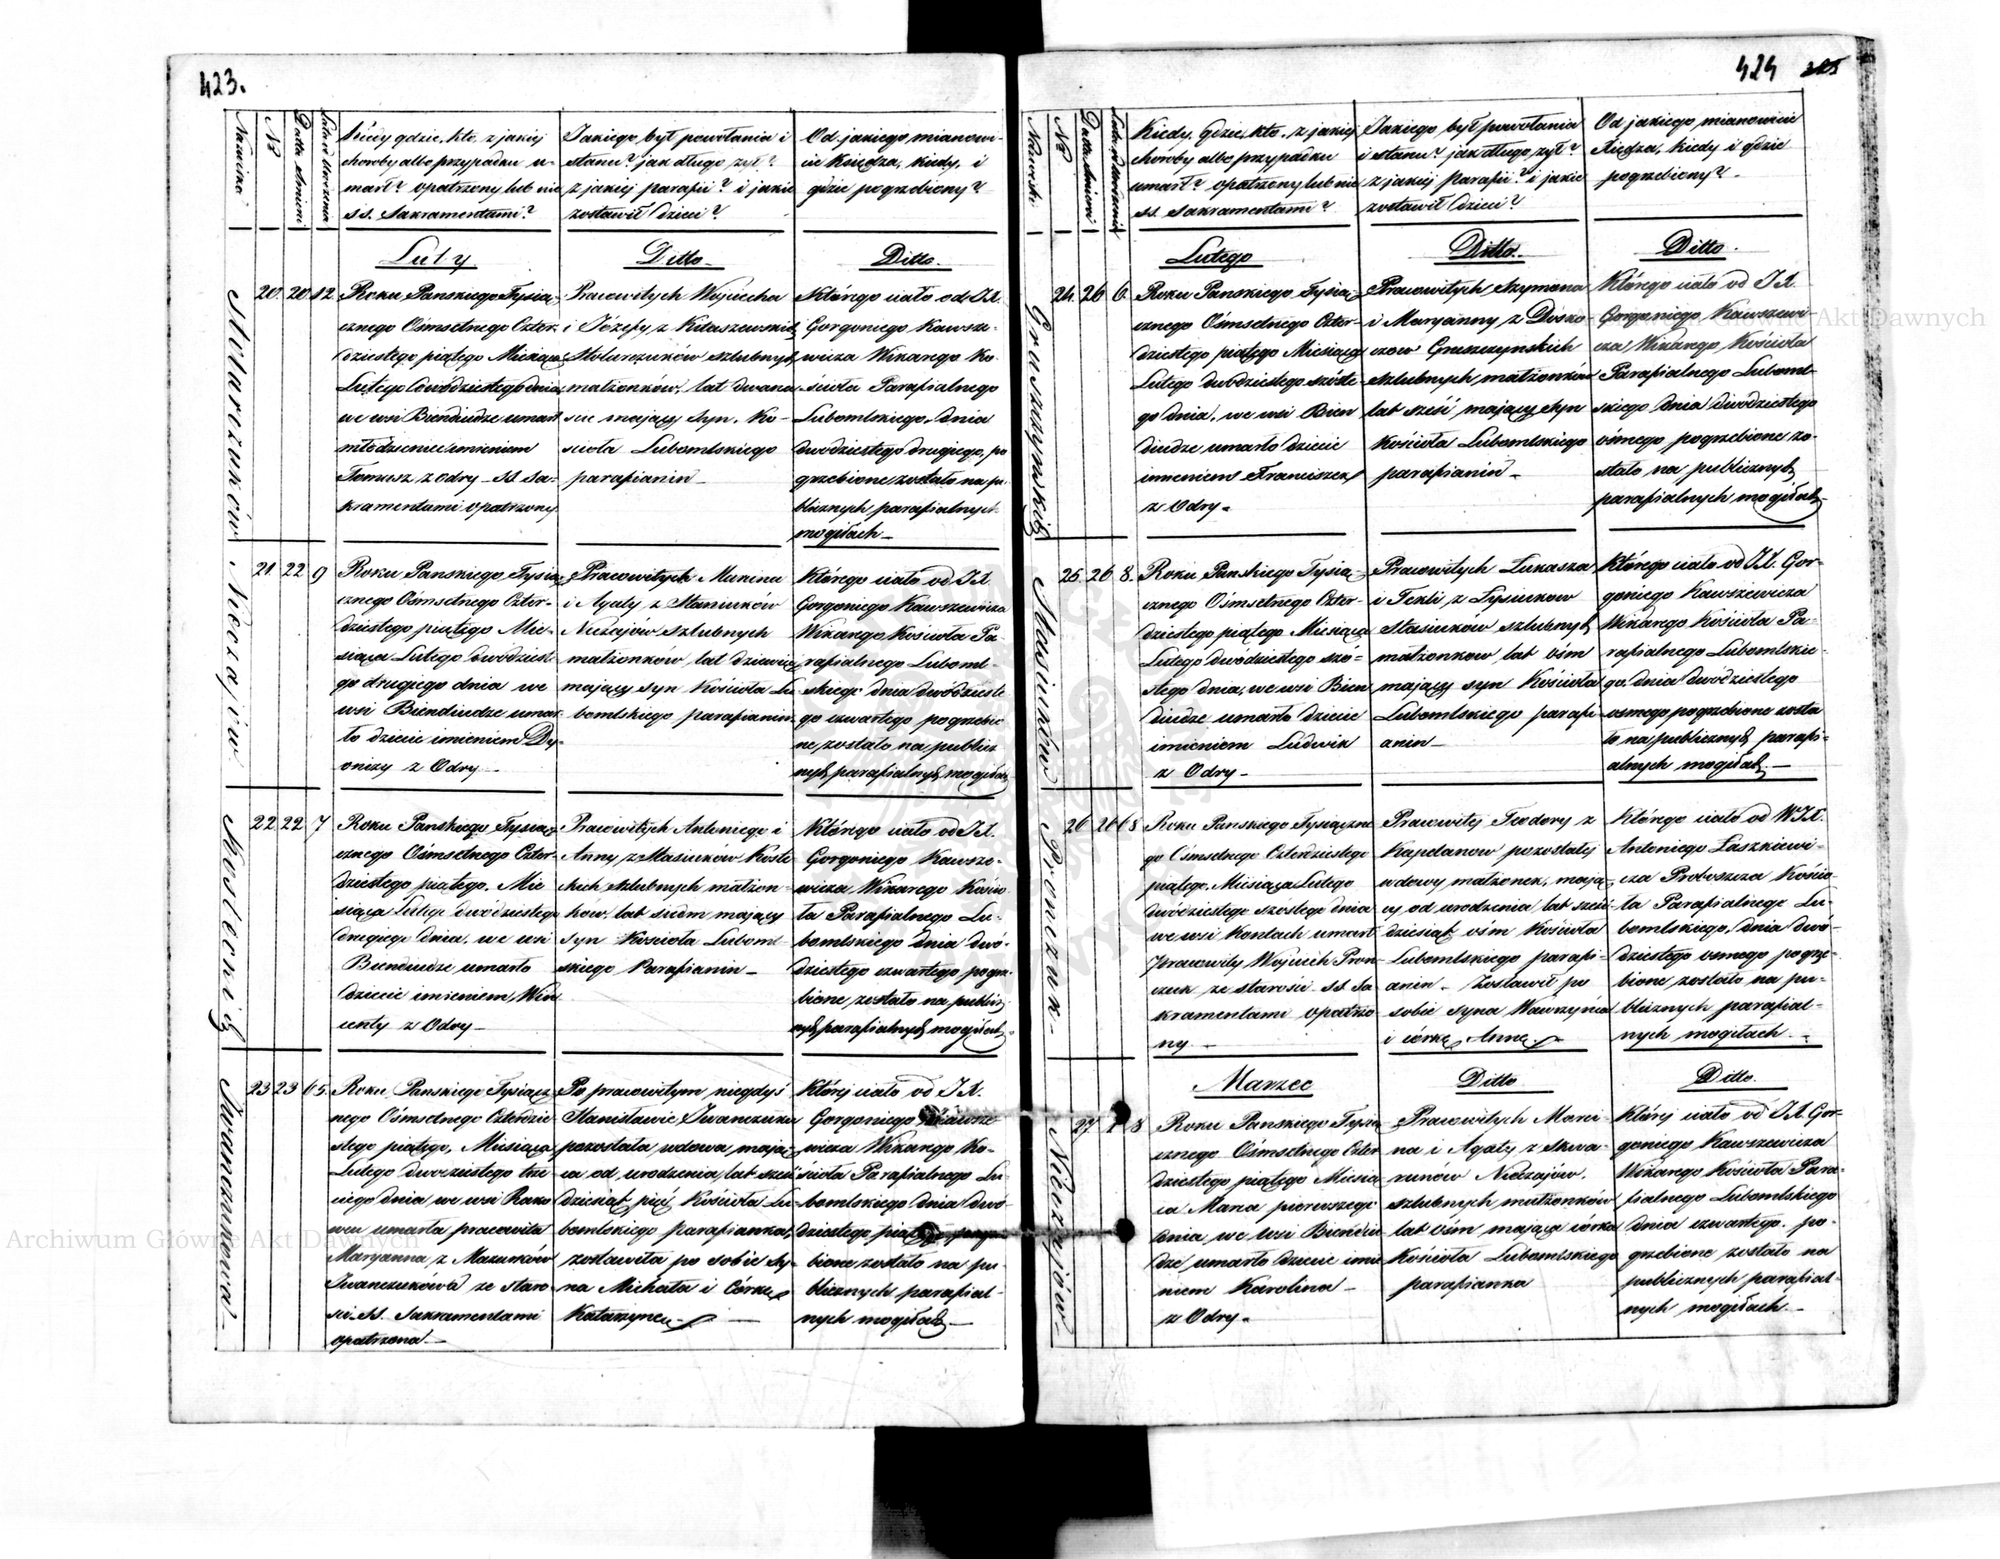 423.
Nazwisko
№
Datta śmierci
Kiedy gdzie, kto, z jakiej
choroby albo przypadku u-
marł? opatrzony lub nie
s s. Sakramentami?
Jakiego był powołania i
stanu? jak długo żył?
z jakiej parafii? i jakie
zostawił Dzieci?
Od jakiego mianowi-
cie Księdza, kiedy, i
gdzie pogrzebiony?
Luty
Ditto.
Ditto.
Stolarczuków
20. 20. 12.
Roku Panskiego Tysią-
cznego Ośmsetnego Czter-
dziestego piątego Miesiąca
Lutego dwódziestego dnia
we wsi Biendudze umarł
młodzieniec imieniem
Tomasz z odry - ss. sa-
kramentami opatrzony
Pracowitych Wojciecha
i Józefy z Kitaszewskich
Stolarczuków szlubnych
małżonków, lat dwana-
scie mający syn. Ko-
scioła Lubomlskiego
parafianin -
Którego ciało od J.X.
Gorgoniego Kawsze-
wicza Wikarego Ko-
ścioła Parafialnego
Lubomlskiego. dnia
dwódziestego drugiego, po
grzebione zostało na pu-
blicznych parafialnych
mogiłach -
Nieczajów
21. 22 9
Roku Panskiego Tysią-
cznego Ośmsetnego Czter-
dziestego piątego Mie-
siąca Lutego dwódzieste-
go drugiego dnia we
wsi Bienduidze umar-
ło dziecie imieniem Dy-
onizy z Odry -
Pracowitych Marcina
i Agaty z Staniuków
Nieczajów szlubnych
małżonków, lat dziewięć
mający syn Kościoła Lu-
bomlskiego parafianin.
Którego ciało od J.X.
Gorgoniego Kawszewicza
Wikarego Kościoła Pa-
rafialnego Luboml-
skiego dnia dwódzieste-
go czwartego pogrzebio-
ne, zostało na publicz-
nych parafialnych mogiłach
Kosteckich
22 22 7
Roku Panskiego Tysią-
cznego Ośmsetnego Czter-
dziestego piątego. Mie-
siąca Lutego dwódziestego
drugiego dnia. we wsi
Bienduidze umarło
dziecie imieniem, Win-
centy z Odry -
Pracowitych Antoniego i
Anny z Stasiuków Koste-
ckich szlubnych małżon-
ków, lat siedm mający
syn Kościoła Luboml-
skiego Parafianin -
Którego ciało od J.X.
Gorgoniego Kawsze-
wicza Wikarego Kościo-
ła Parafialnego Lu-
bomlskiego dnia dwó-
dziestego czwartego pogrze-
bione zostało na publicz-
nych parafialnych mogiłach -
Iwanczukowa
23 23 65.
Roku Panskiego Tysiącz-
nego Ośmsetnego Czterdzie-
stego piątego, Miesiąca
Lutego dwódziestego trze-
ciego dnia we wsi
umarła pracowita
Maryanna z Mazurków
Iwanczukowa ze staro-
sci. ss. Sakramentami
opatrzona. -
Po pracowitym niegdyś
Stanisławie Iwanczuku
pozostała wdowa mają-
ca od urodzenia, lat sześć-
dziesiąt pięć Kościoła Lu-
bomlskiego parafianka,
zostawiła po sobie sy-
na Michała i Córkę
Katarzynę. -
Której ciało od J.X.
Gorgoniego Kawsze-
wicza Wikarego Ko-
ścioła Parafialnego Lu-
bomlskiego dnia dwó-
dziestego piątego pogrze-
bione zostało na pu-
blicznych parafial-
nych mogiłach -
424
Nazwisko
№
Datta śmierci
Kiedy, Gdzie, kto, z jakiej
choroby albo przypadku
umarł? opatrzony lub nie
ss. Sakramentami?
Jakiego był powołania
i stanu? jak długo żył?
z jakiej Parafii? i jakie
zostawił Dzieci?
Od jakiego mianowicie
Xiędza, kiedy i gdzie
pogrzebiony? -
Lutego
Ditto.
Ditto.
Gruszczynskich
24. 26 6.
Roku Panskiego Tysią-
cznego Ośmsetnego Czter-
dziestego piątego Miesiąca
Lutego dwódziestego szóste-
go dnia, we wsi Bien
duidze umarło dziecie
imieniem Franciszek
z Odry -
Pracowitych Szymona
i Maryanny z Dosko-
czów Gruszczynskich
szlubnych małżonków
lat sześć mający syn
Kościoła Lubomlskiego
parafianin -
Którego ciało od J.X.
Gorgoniego Kawszewi-
cza Wikarego Kościoła
Parafialnego Luboml-
skiego dnia dwódziestego
ósmego pogrzebione zo-
stało na publicznych
parafialnych mogiłach -
Stasiuków
25. 26 8.
Roku Panskiego Tysią-
cznego Ośmsetnego Czter-
dziestego piątego Miesiąca
Lutego dwódziestego szó-
stego dnia, we wsi Bien
duidze umarło dziecie
imieniem Ludwik
z Odry -
Pracowitych Łukasza
i Tekli z Łysiuków
Stasiuków szlubnych
małżonków, lat ośm
mający syn Kościoła
Lubomlskiego parafi-
anin -
Którego ciało od J.X. Gor-
goniego Kawszewicza
Wikarego Kościoła Pa-
rafialnego Lubomlskie-
go dnia dwódziestego
ósmego pogrzebione zosta
ło na publicznych parafi-
alnych mogiłach -
Pronczuk.
26 26 68
Roku Panskiego Tysiączne
go Ośmsetnego Czterdziestego
piątego. Miesiąca Lutego
dwódziestego szóstego dnia
we wsi Kontach umarł
Pracowity Wojciech Pron-
czuk ze starosci. ss. sa
kramentami opatrzo-
ny. -
Pracowitej Teodory z
Kapdanow pozostałej
wdowy małżonek, mają-
cy od urodzenia, lat sześć-
dziesiąt ośm Kościoła
Lubomlskiego parafi-
anin - Zostawił po
sobie syna Wawrzynia
i córkę Annę. -
Którego ciało od W.J.X.
Antoniego Laszkiewi-
cza Proboszcza Kościo-
ła Parafialnego Lu-
bomlskiego, dnia dwó-
dziestego osmego pogrze-
bione zostało na pu-
blicznych parafial-
nych mogiłach. -
Marzec
Ditto
Ditto.
Nieczajów
27 1 8
Roku Panskiego Tysią-
cznego Ośmsetnego Czter
dziestego piątego Miesią-
ca Marca pierwszego
dnia, we wsi Biendui
dze umarło dziecie imie
niem Karolina -
z Odry -
Pracowitych Marci-
na i Agaty z Skwa-
runów Nieczajów.
szlubnych małżonków
lat ośm mająca córka
Kościoła Lubomlskiego
parafianka
Której ciało od J.X. Gor-
goniego Kawszewicza
Wikarego Kościoła Para-
fialnego Lubomlskiego
dnia czwartego. po-
grzebione zostało na
publicznych parafial-
nych mogiłach. -
Archiwum Główne Akt Dawnych
Archiwum Główne Akt Dawnych